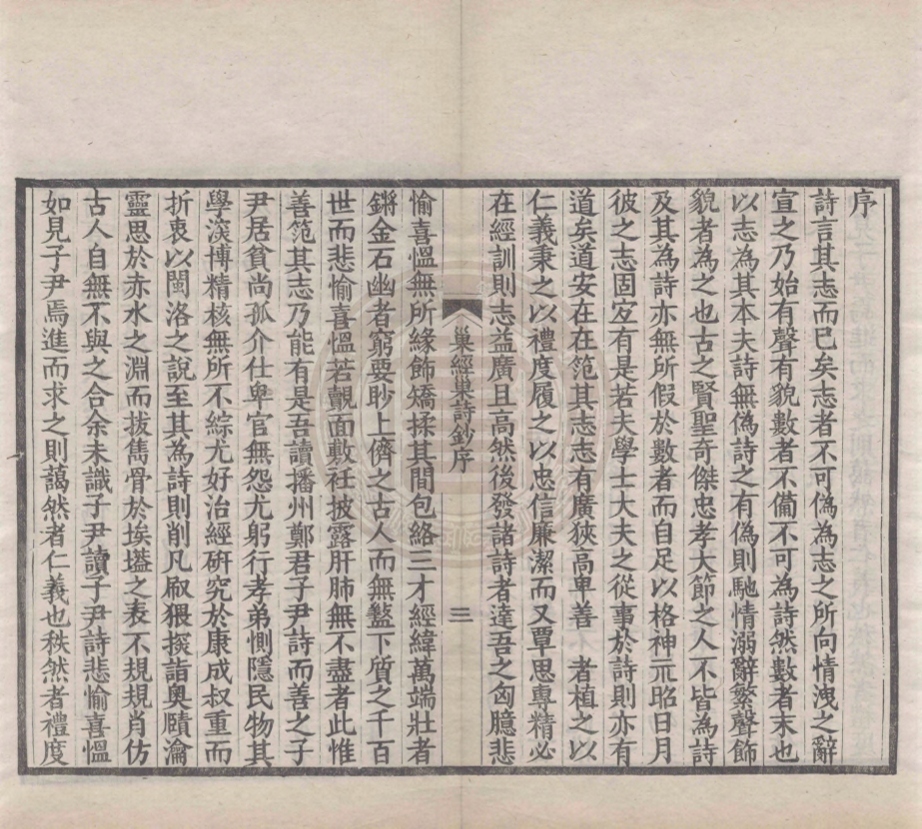 序
詩言其志而已矣志者不可偽為志之所向情洩之辭
宣之乃始有聲有貌數者不備不可為詩然數者末也
以志為其本夫詩無偽詩之有偽則馳情溺辭繁聲飾
貌者為之也古之賢聖奇傑忠孝大節之人不皆為詩
及其為詩亦無所假於數者而自足以格神示昭日月
彼之志固宜有是若夫學士大夫之從事於詩則亦有
道矣道安在在范其志志有廣狹高卑善 者植之以
仁義秉之以禮度履之以忠信廉潔而又覃思專精必
在經訓則志益廣且高然後發諸詩者達吾之匈臆悲
巢經巢詩鈔序
三
愉喜慍無所緣飾矯揉其間包絡三才經緯萬端壯者
鏘金石幽者窮要眇上儕之古人而無盭下質之千百
世而悲愉喜慍若覿面敷衽披露肝肺無不盡者此惟
善范其志乃能有是吾讀播州鄭君子尹詩而善之子
尹居貧尚孤介仕卑官無怨尤躬行孝弟惻隱民物其
學淡博精核無所不綜尤好治經研究於康成叔重而
折衷以閩洛之說至其為詩則削凡刷猥探詣奧賾瀹
靈思於赤水之淵而拔雋骨於埃壒之表不規規肖仿
古人自無不與之合余未識子尹讀子尹詩悲愉喜慍
如見子尹焉進而求之則藹然者仁義也秩然者禮度